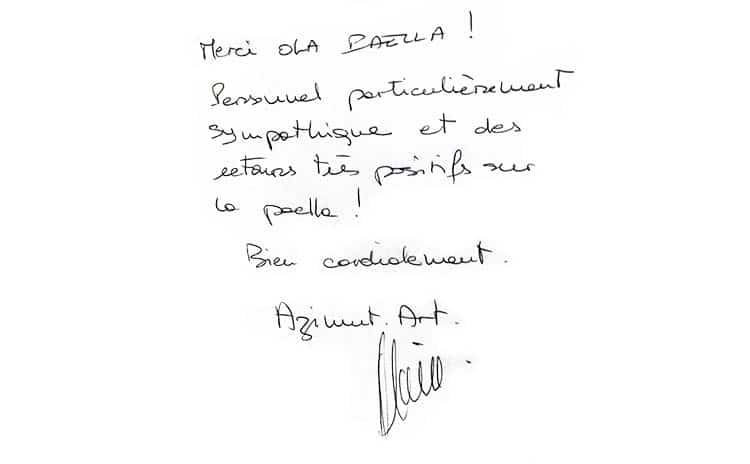 Merci OLA PAELLA !
Personnel particulièrement
sympathique et des
retours très positifs sur
la paella !
Bien cordialement.
Azimut. Art.